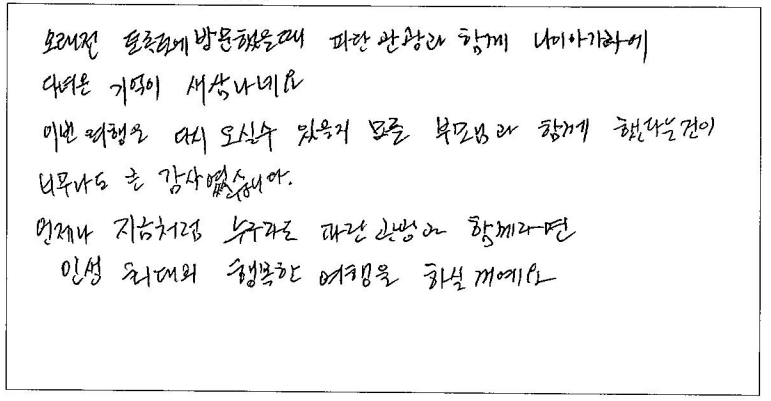 오래전 토론토에 방문했을때 파란 관광과 함께 나이아가라에
다녀온 기억이 새삼나네요
이번 여행은 다시 오실수 있을지 모를 부모님과 함께 했다는것이
너무나도 큰 감사였습니다.
언제나 지금처럼 누구라도 파란 관광과 함께라면
인생 최대의 행복한 여행을 하실꺼예요